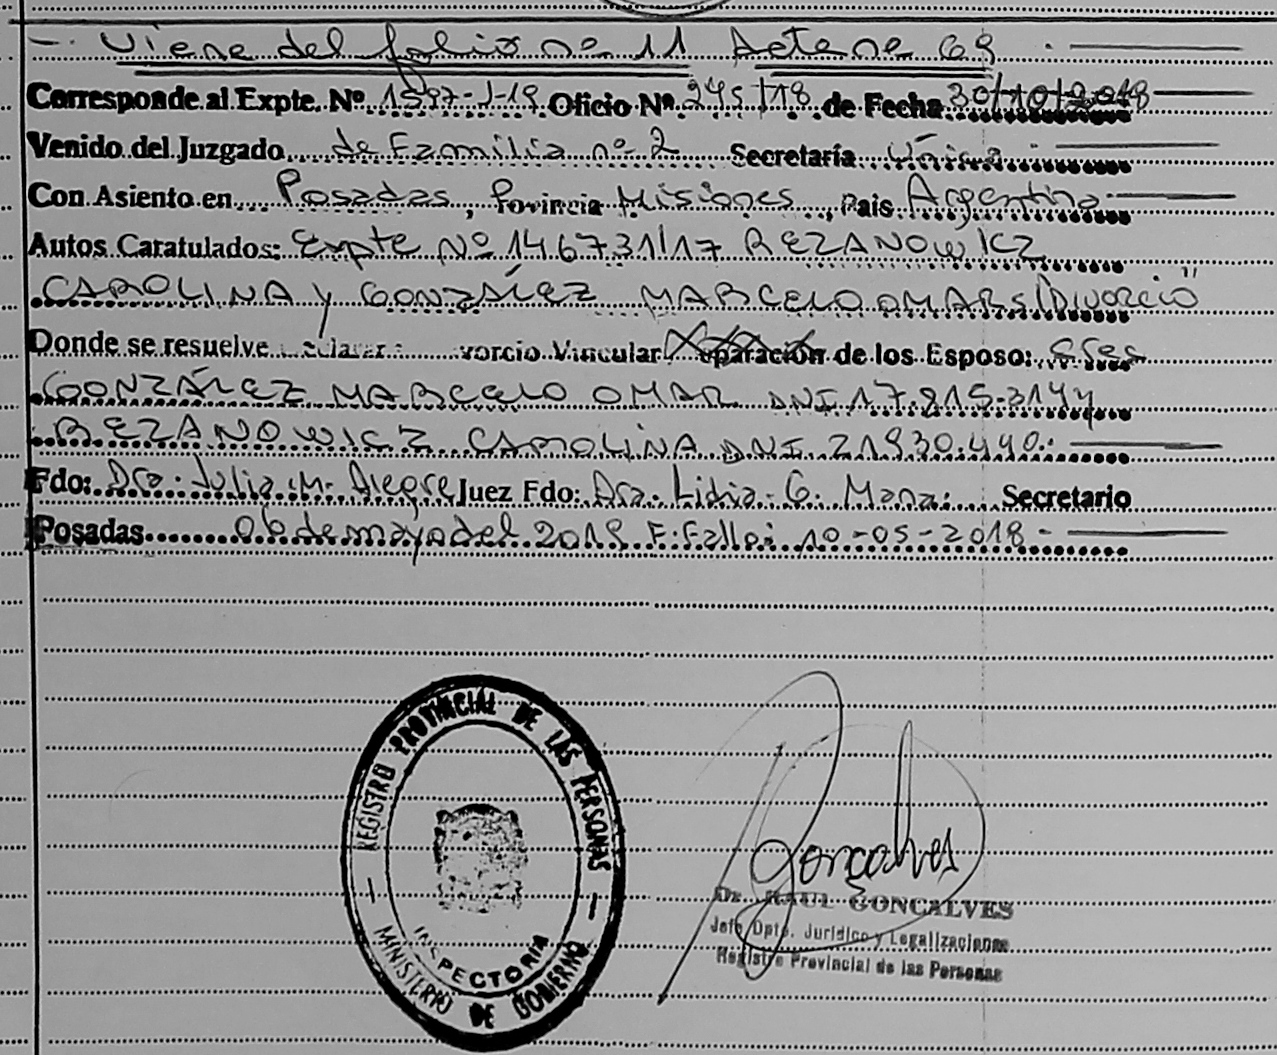 Viene del folio nº 11 Acta nº 69
Corresponde al Expte. Nº 1597-J-19 Oficio Nº 245/18 de Fecha 30/10/2018
Venido del Juzgado de Familia nº 2 Secretaría Única
Con Asiento en Posadas, Povincia Misiones, Pais Argentina
Autos Caratulados: Expte Nº 146731/17 REZANOWICZ
CAROLINA y GONZÁLEZ MARCELO OMAR S/Divorcio"
Donde se resuelve vorcio Vincular de los Esposo:
GONZÁLEZ MARCELO OMAR DNI 17.815.3144
REZANOWICZ CAROLINA DNI 21930.440
Fdo: Dra. Julia M. Alegre Juez Fdo: Dra. Lidia G. Mana: Secretario
Posadas 06 de mayo del 2019 F: Fallo: 10-05-2018
REGISTRO PROVINCIAL DE LAS PERSONAS
INSPECTORIA
MINISTERIO DE GOBIERNO
Gonçalves
Dr. RAUL GONCALVES
Jefe Dpto. Jurídico y Legalizaciones
Registro Provincial de las Personas